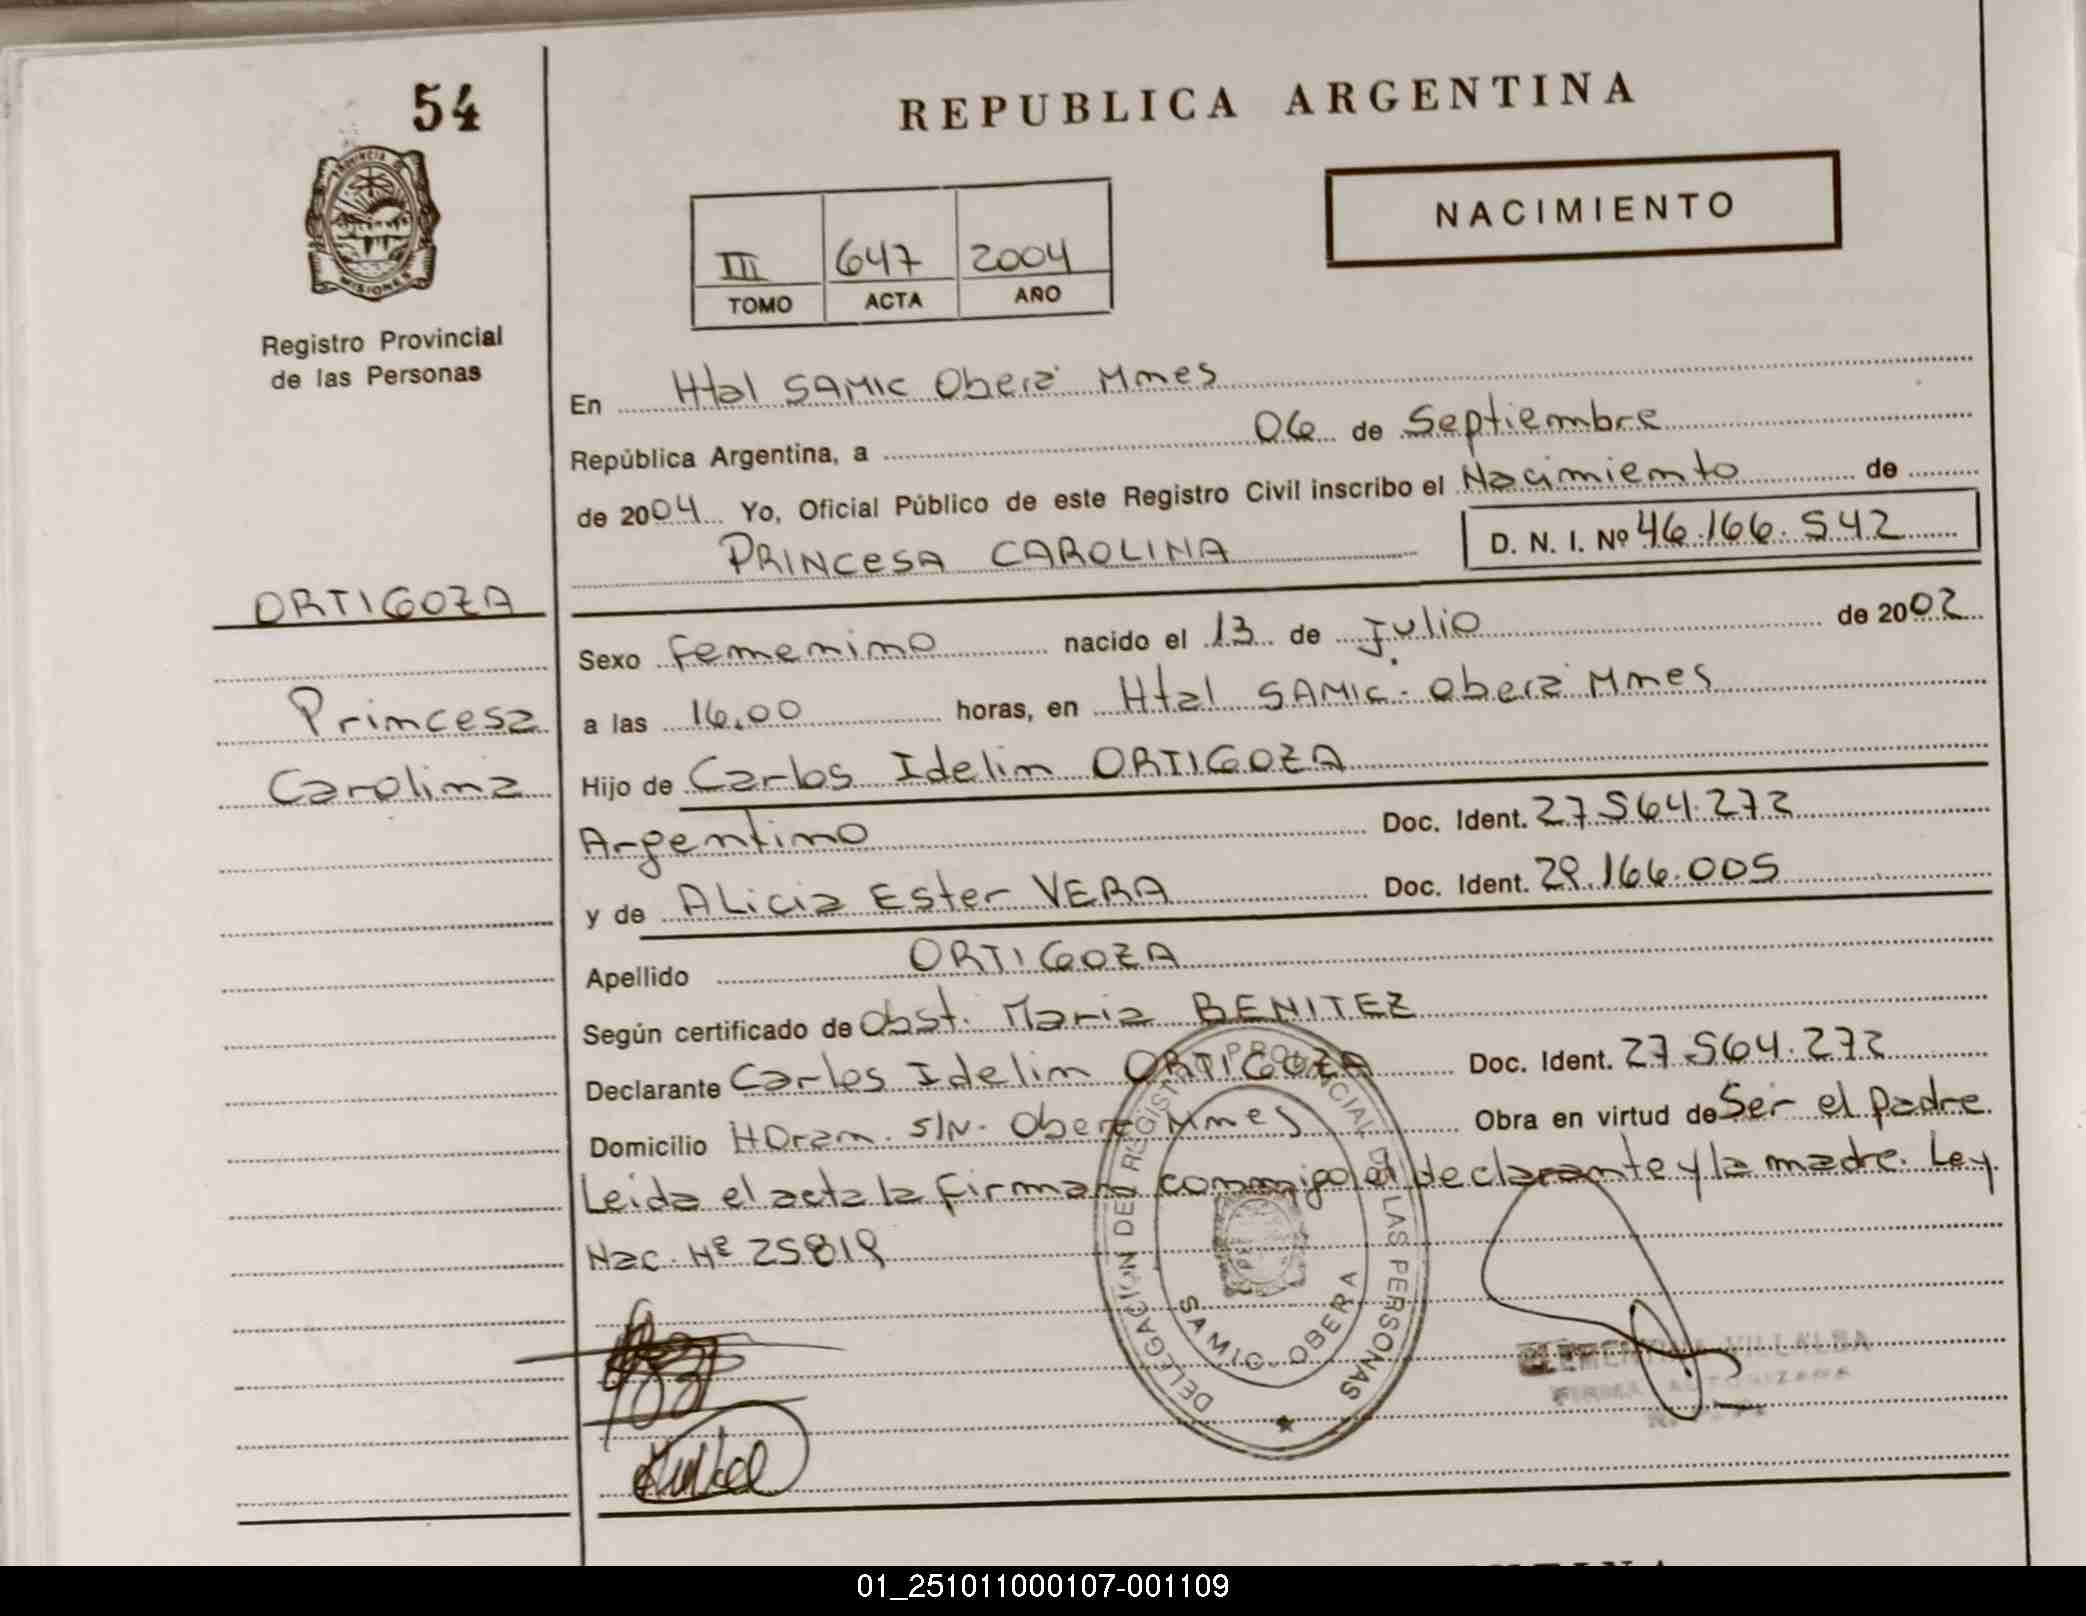 54
REPUBLICA ARGENTINA
PROVINCIA DE
MISIONES
NACIMIENTO
III 647 2004
TOMO ACTA AÑO
Registro Provincial
de las Personas
En Htal SAMIC Oberá Mnes
República Argentina, a 06 de Septiembre
de 2004 Yo, Oficial Público de este Registro Civil inscribo el Nacimiento de
PRINCESA CAROLINA D. N. I. Nº 46.166.542
ORTIGOZA
Princesa
Carolina
Sexo Femenino nacido el 13 de Julio de 2002
a las 16.00 horas, en Htal SAMIC - Oberá Mnes
Hijo de Carlos Idelin ORTIGOZA
Argentino Doc. Ident. 27.564.272
y de ALicia Ester VERA Doc. Ident. 29.166.005
Apellido ORTIGOZA
Según certificado de Obst. Maria BENITEZ
Declarante Carlos Idelin ORTIGOZA Doc. Ident. 27.564.272
Domicilio S/N. Oberá Mnes Obra en virtud de Ser el padre
Leida el acta la firman conmigo el declarante y la madre. Ley.
Nac. Nº 25819
DELEGACION DEL REGISTRO PROVINCIAL DE LAS PERSONAS
SAMIC OBERA
VILLALBA
FIRMA AUTORIZADA
01_251011000107-001109